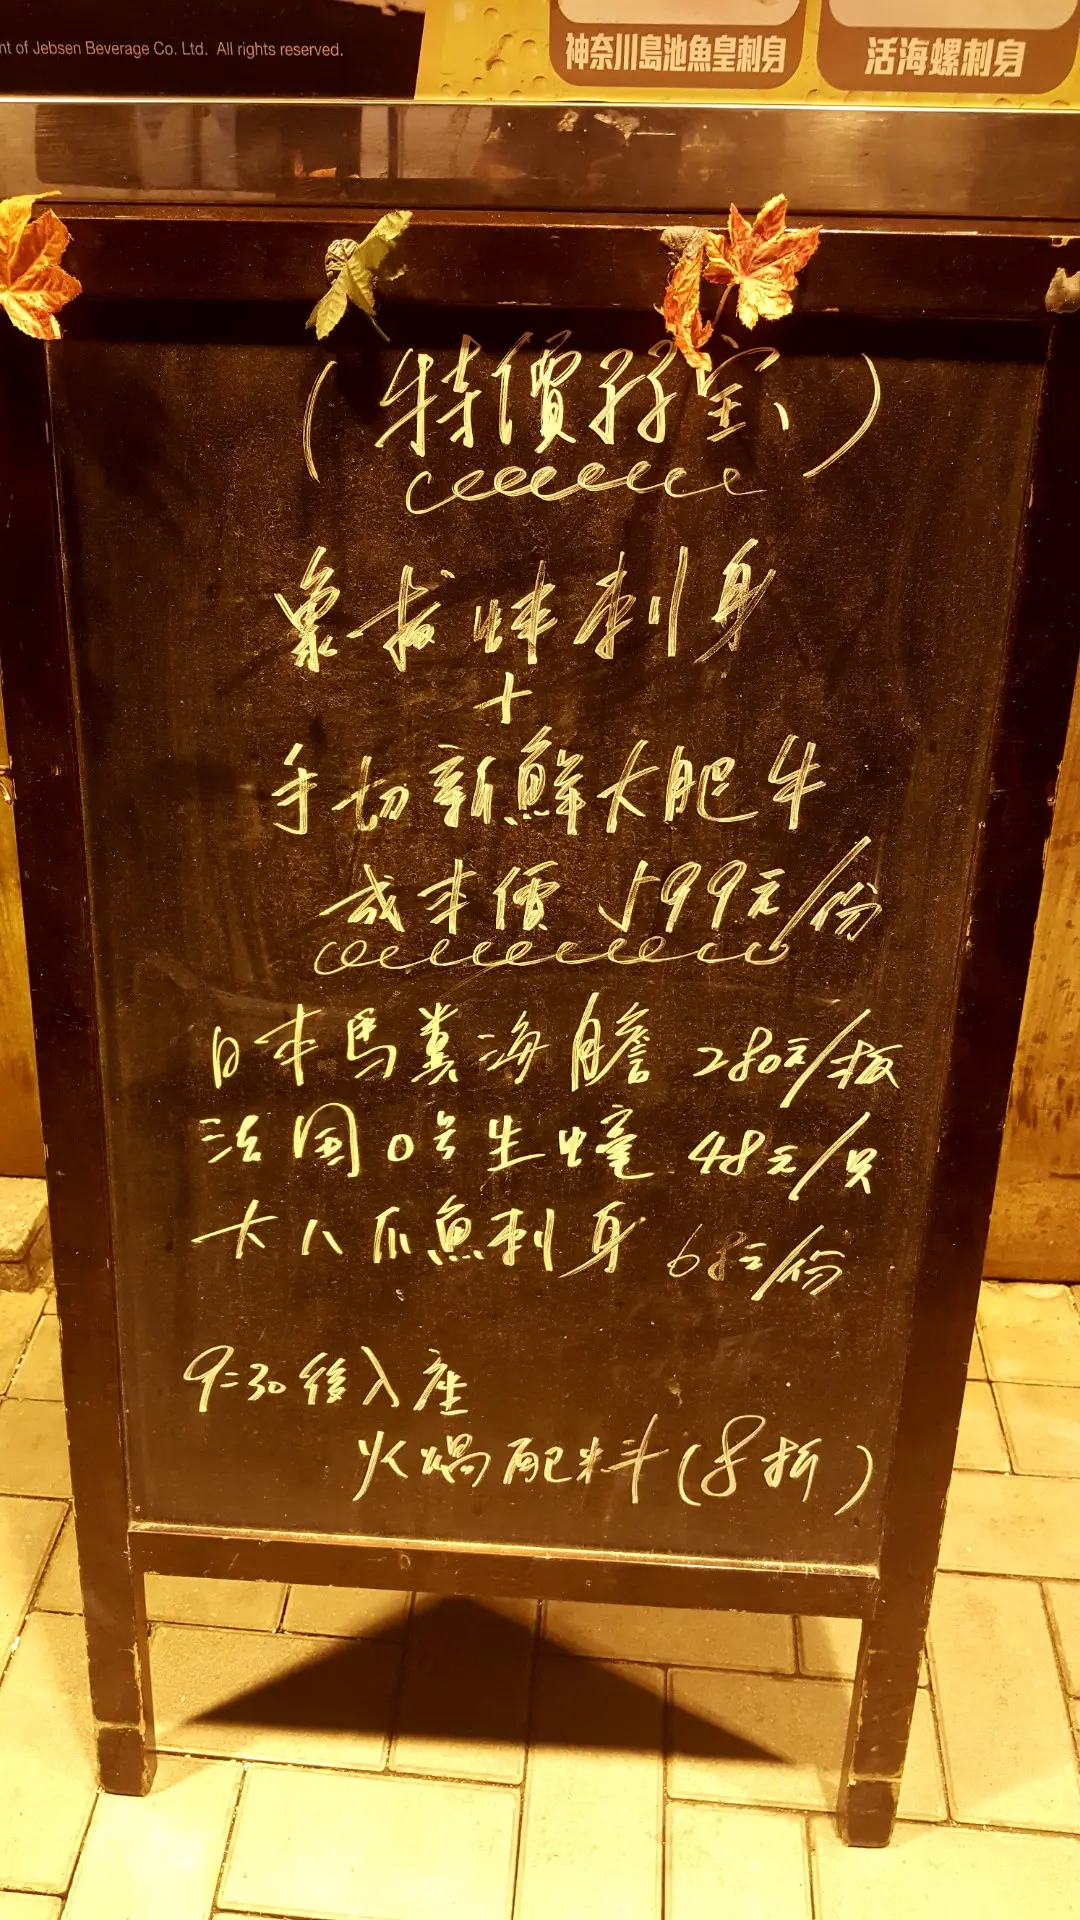 nt of Jebsen Beverage Co. Ltd. All rights reserved.
神奈川島池魚皇刺身
活海螺刺身
(特價孖宝)
象拔蚌刺身
+
手切新鮮大肥牛
成本價 599元/份
日本馬糞海膽 280元/板
法國0号生蠔 48元/只
大八爪魚刺身 68元/份
9:30後入座
火焗配料(8折)